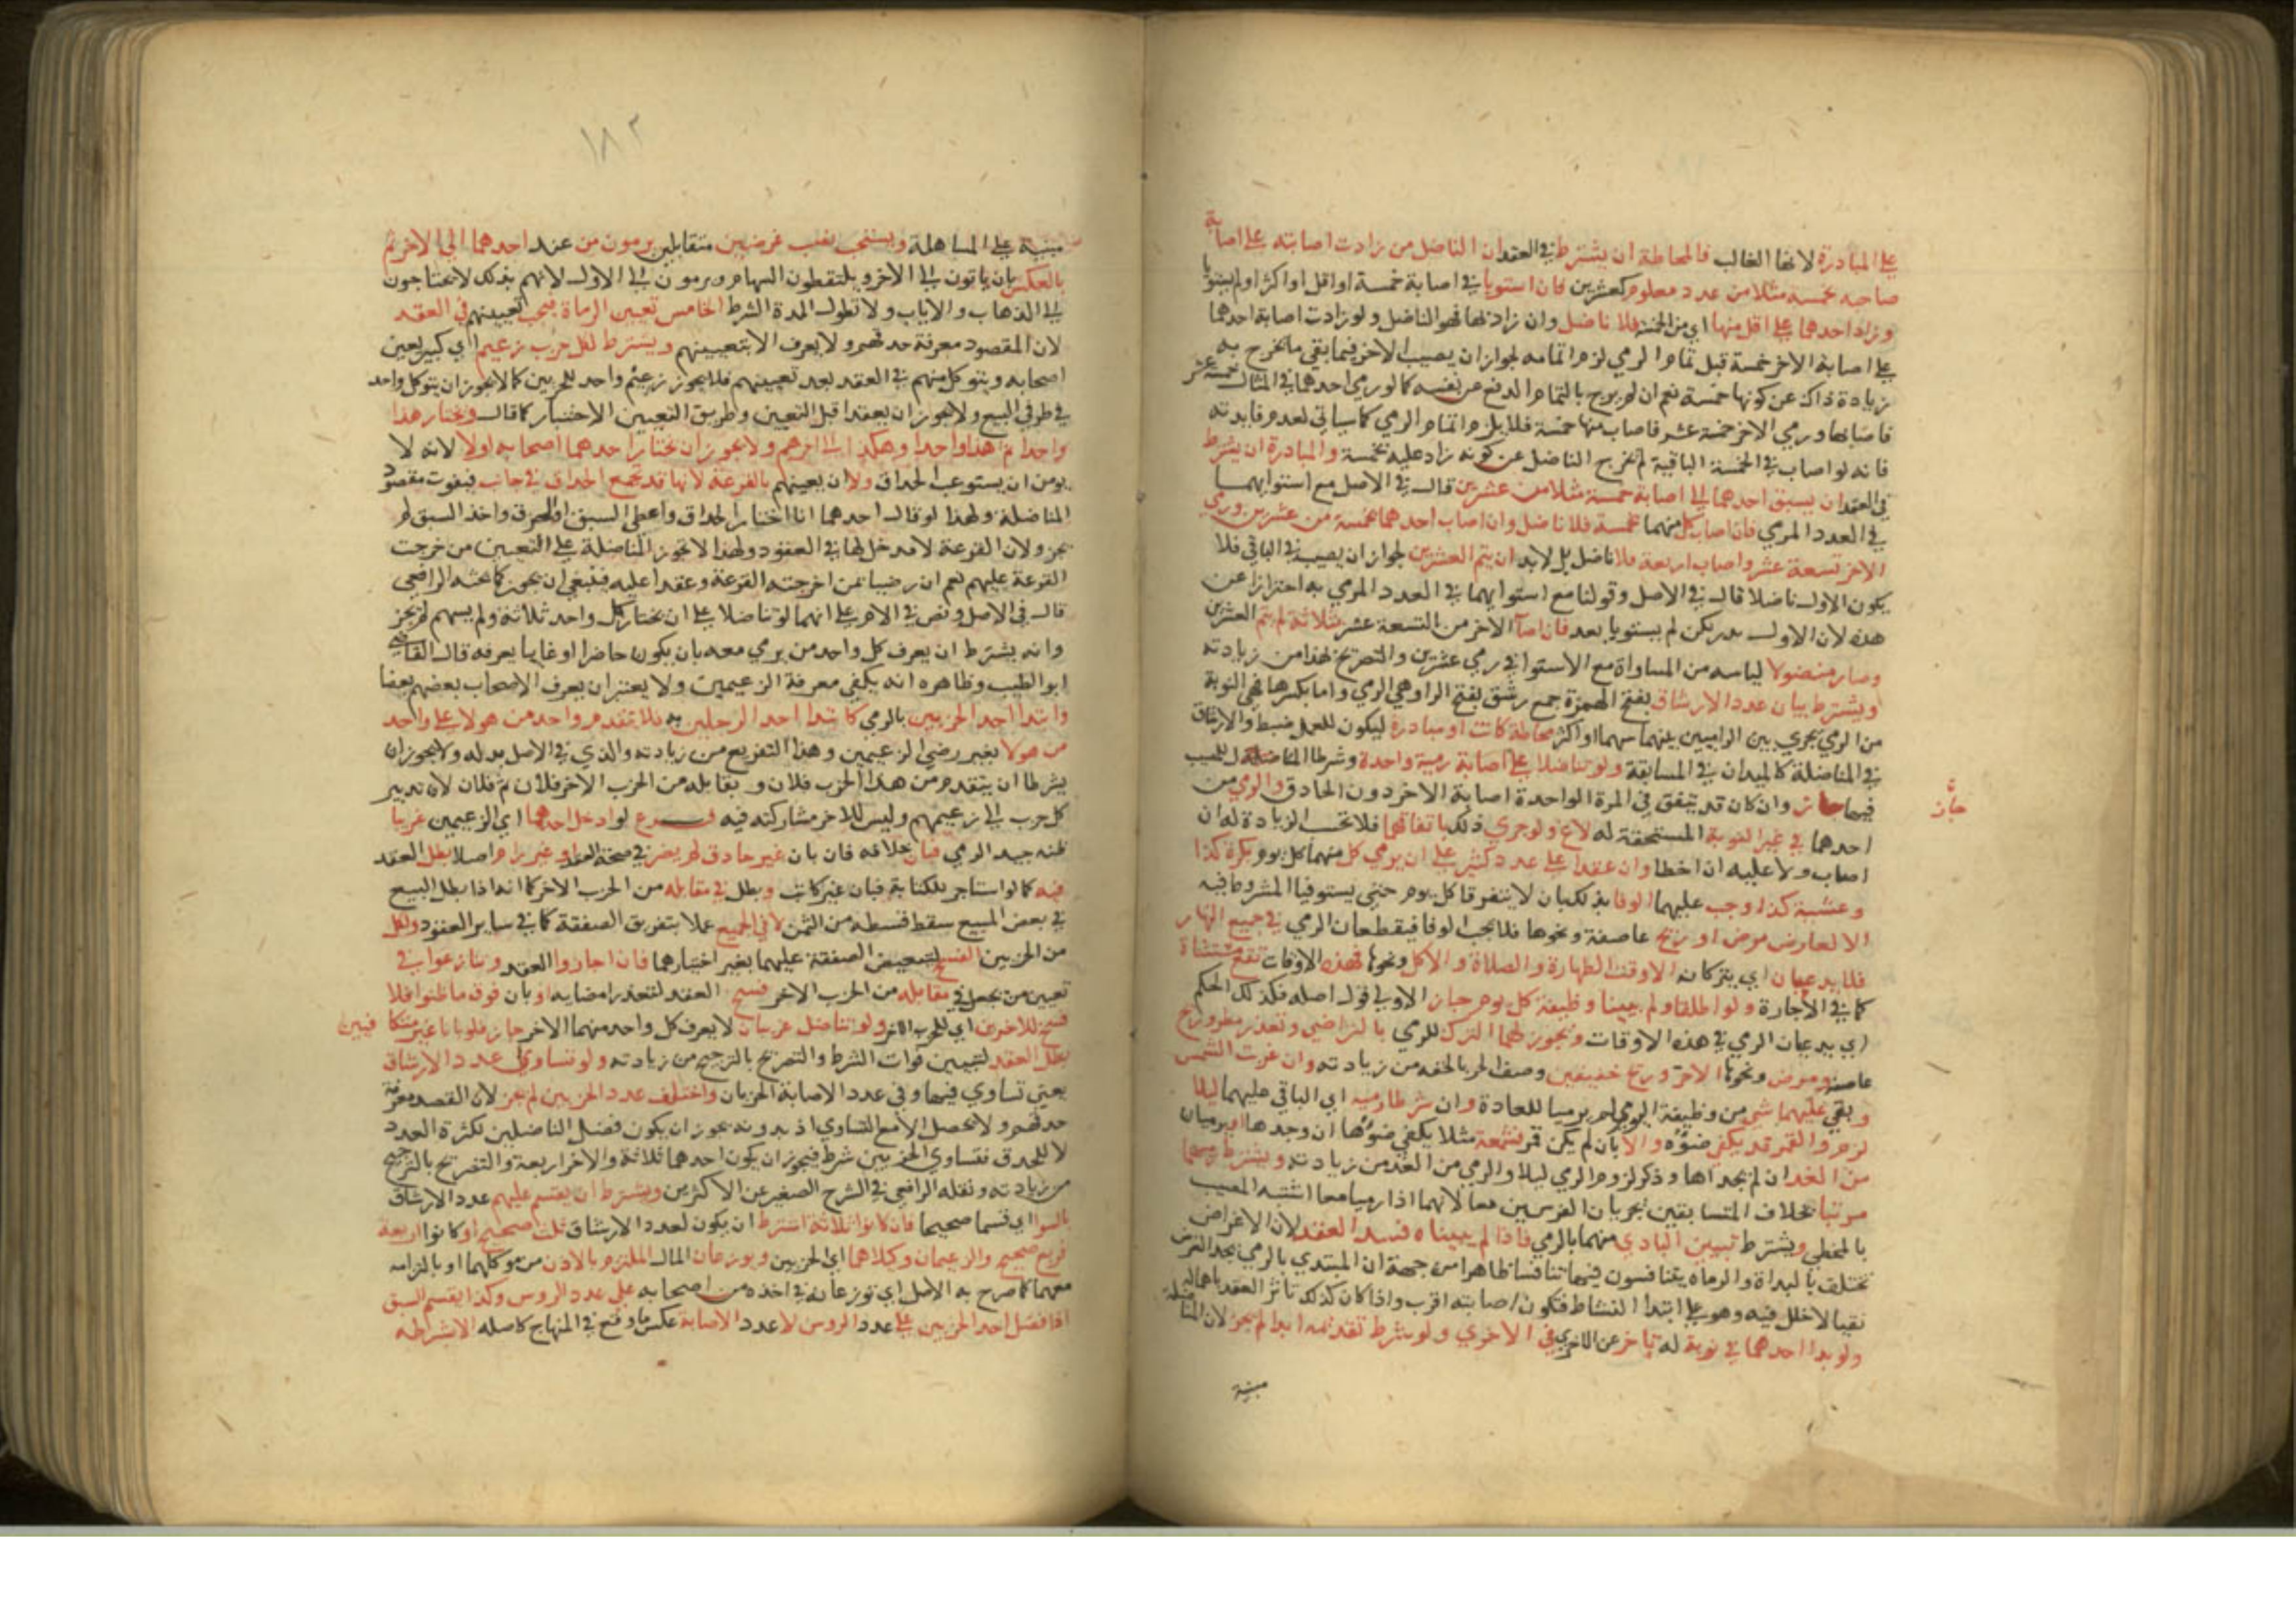 على المبادرة لانها الغالب فالمحاطة ان يشترط في العقد ان الناضل من زادت اصابته على اصابة
صاحبه بخمسة مثلا من عدد معلوم كعشرين فان استويا في اصابة خمسة او اقل او اكثر او لم يستويا
وزاد احدهما على اقل منها اي من الخمسة فلا ناضل وان زاد بها فهو الناضل ولو زادت اصابة احدهما
على اصابة الاخر خمسة قبل تمام الرمي لزم اتمامه لجواز ان يصيب الاخر فيما بقي ما تخرج به
زيادة ذاك عن كونها خمسة نعم ان لم يرج بالتمام الدفع عن نفسه كما لو رمى احدهما في المثال خمسة عشر
فاصابها ورمي الاخر خمسة عشر فاصاب منها خمسة فلا يلزم اتمام الرمي كما سياتي لعدم فايدته
فانه لو اصاب في الخمسة الباقية لم تخرج الناضل عن كونه زاد عليه بخمسة والمبادرة ان يشترط
في العقد ان يسبق احدهما الى اصابة خمسة مثلا من عشرين قال في الاصل مع استوايهما
في العدد المرمي فان اصاب كل منهما خمسة فلا ناضل وان اصاب احدهما خمسة من عشرين ورمي
الاخر تسعة عشر واصاب اربعة فلا ناضل بل لابد ان يتم العشرين لجواز ان يصيب في الباقي فلا
يكون الاول ناضلا قال في الاصل وقولنا مع استوايهما في العدد المرمي به احترازا عن
هذه لان الاول بدر لكن لم يستويا بعد فان اصاب الاخر من التسعة عشر ثلاثة لم يتم العشرين
وصار منضولا لياسه من المساواة مع الاستوا في رمي عشرين والتصريح بهذا من زيادته
ويشترط بيان عدد الارشاق بفتح الهمزة جمع رشق بفتح الرا وهي الرمي واما بكسرها فهي النوبة
من الرمي يجري بين الراميين بينهما سهما او اكثر محاطة كانت او مبادرة ليكون للعمل ضبط والارشاق
في المناضلة كالميدان في المسابقة ولو تناضلا على اصابة رمية واحدة وشرطا المناضلة للمصيب
فيها جاز وان كان قد يتفق في المرة الواحدة اصابة الاخر دون الحاذق والرمي من
جاز
احدهما في غير النوبة المستحقة له لاغ ولو جرى ذلك باتفاقهما فلا تحسب الزيادة له ان
اصاب ولا عليه ان اخطا وان عقدا على عدد كثير على ان يرمي كل منهما كل يوم بكرة كذا
وعشية كذا وجب عليهما الوفا بذلك بان لا يتفرقا كل يوم حتى يستوفيا المشروط فيه
الا لعارض مرض او ريح عاصفة ونحوها فلا يجب الوفا فيقطعان الرمي في جميع النهار
فلا يدعيان اي يتركانه الا وقت الطهارة والصلاة والاكل ونحوها فهذه الاوقات تقع مستثناة
كما في الاجارة ولو اطلقا ولم يبينا وظيفة كل يوم جاز الاولى قول اصله فكذلك الحكم
اي يدعيان الرمي في هذه الاوقات ويجوز لهما الترك للرمي بالتراضي وتعذر مطر وريح
عاصفة ومرض ونحوها لا حر وريح خفيفين وصف الحر بالخفة من زيادته وان غربت الشمس
وبقي عليهما شي من وظيفة اليوم لم يرميا للعادة وان شرطا رميه اي الباقي عليهما ليلا
لزم والقمر قد يكفي ضوؤه والا بان لم يكن قمر فشمعة مثلا يكفي ضوؤها ان وجدها او يرميان
من الغد ان لم يجداها وذكر لزوم الرمي ليلا والرمي من الغد من زيادته ويشترط رميهما
مرتبا بخلاف المتسابقين يجريان الفرسين معا لانهما اذا رميا معا اشتبه المصيب
بالمخطي ويشترط تبيين البادي منهما بالرمي فاذا لم يبيناه فسد العقد لان الاغراض
تختلف بالبداة والرماه يتنافسون فيها تنافسا ظاهرا من جهة ان المبتدي بالرمي يجد الغرض
نقيا لا خلل فيه وهو على ابتدا النشاط فتكون اصابته اقرب واذا كان كذلك تاثر العقد باهماله
ولو بدا احدهما في نوبة له تاخر عن الاخر في الاخرى ولو شرط تقديمه ابدا لم يجز لان المناضلة
مبنية
١٨٢
مبنية على المساهلة ويستحب نصب غرضين متقابلين يرمون من عند احدهما الى الاخر ثم
بالعكس بان ياتون الى الاخر ويلتقطون السهام ويرمون الى الاول لانهم بذلك لا يحتاجون
الى الذهاب والاياب ولا تطول المدة الشرط الخامس تعيين الرماة فيجب تعيينهم في العقد
لان المقصود معرفة حذقهم ولا يعرف الا بتعيينهم ويشترط لكل حزب زعيم اي كبير يعين
اصحابه ويتوكل منهم في العقد بعد تعيينهم فلا يجوز زعيم واحد للحزبين كما لا يجوز ان يتوكل واحد
في طرفي البيع ولا يجوز ان يعقدا قبل التعيين وطريق التعيين الاختيار كما قال ويختار هذا
واحدا ثم هذا واحدا وهكذا الى اخرهم ولا يجوز ان يختار احدهما اصحابه اولا لانه لا
يومن ان يستوعب الحذاق ولا ان يعينهم بالقرعة لانها قد تجمع الحذاق في جانب فيفوت مقصود
المناضلة ولهذا لو قال احدهما انا اختار الحذاق واعطي السبق او الخرق واخذ السبق لم
يجز ولان القرعة لا مدخل لها في العقود ولهذا لا تجوز المناضلة على التعيين من خرجت
القرعة عليهم نعم ان رضيا بمن اخرجته القرعة وعقدا عليه فينبغي ان يجوز كما بحثه الرافعي
قال في الاصل ونص في الام على انهما لو تناضلا على ان يختار كل واحد ثلاثة ولم يسمهم لم يجز
وانه يشترط ان يعرف كل واحد من يرمي معه بان يكون حاضرا او غايبا يعرفه قال القاضي
ابو الطيب وظاهره انه يكفي معرفة الزعيمين ولا يعتبر ان يعرف الاصحاب بعضهم بعضا
وابتدا احد الحزبين بالرمي كابتدا احد الرجلين به فلا يتقدم واحد من هولا على واحد
من هولا بغير رضى الزعيمين وهذا التفريع من زيادته والذي في الاصل بدله ولا يجوز ان
يشرطا ان يتقدم من هذا الحزب فلان ويقابله من الحزب الاخر فلان ثم فلان لان تدبير
كل حزب الى زعيمهم وليس للاخر مشاركته فيه فرع لو ادخل احدهما اي الزعيمين غريبا
ظنه جيد الرمي فبان بخلافه فان بان غير حاذق لم يضر في صحة العقد او غير رام اصلا بطل العقد
فيه كما لو استاجر للكتابة فبان غير كاتب وبطل في مقابله من الحزب الاخر كما انه اذا بطل البيع
في بعض المبيع سقط قسطه من الثمن لا في الجميع عملا بتفريق الصفقة كما في ساير العقود ولكل
من الحزبين الفسخ لتبعيض الصفقة عليهما بغير اختيارهما فان اجازوا العقد وتنازعوا في
تعيين من يجعل في مقابله من الحزب الاخر فسخ العقد لتعذر امضايه او بان فوق ما ظنوا فلا
فسخ للاخرين اي للحزب الاخر ولو تناضل غريبان لا يعرف كل واحد منهما الاخر جاز فلو بانا غير متكافيين
بطل العقد لتبيين فوات الشرط والتصريح بالترجيح من زيادته ولو تساوي عدد الارشاق
يعني تساوي فيها وفي عدد الاصابة الحزبان واختلف عدد الحزبين لم يجز لان القصد معرفة
حذقهم ولا تحصل الا مع التساوي اذ بدونه يجوز ان يكون فضل الناضلين لكثرة العدد
لا للحذق فتساوي الحزبين شرط فيجوز ان يكون احدهما ثلاثة والاخر اربعة والتصريح بالترجيح
من زيادته ونقله الرافعي في الشرح الصغير عن الاكثرين ويشترط ان يقسم عليهم عدد الارشاق
بالسوا اي قسما صحيحا فان كانوا ثلاثة اشترط ان يكون لعدد الارشاق ثلث صحيح او كانوا اربعة
فربع صحيح والزعيمان وكيلاهما اي الحزبين ويوزعان المال الملتزم بالاذن من موكلهما او بالتزامه
معهما كما صرح به الاصل اي توزعانه في اخذه من اصحابه على عدد الروس وكذا يقسم السبق
اذا فضل احد الحزبين على عدد الروس لا عدد الاصابة عكس ما وقع في المنهاج كاصله الا بشرطه